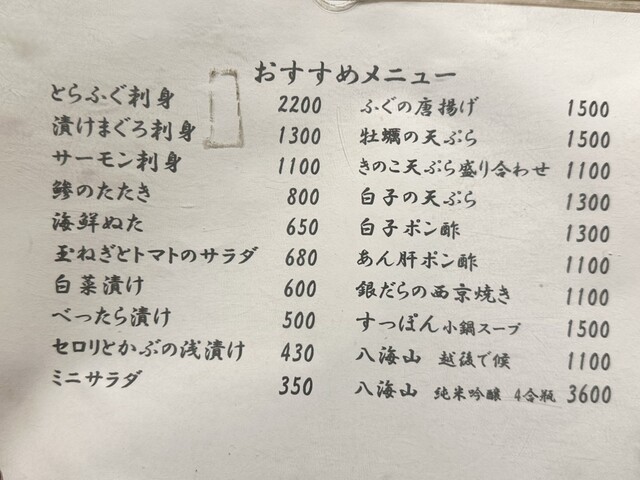 おすすめメニュー
とらふぐ刺身 2200
漬けまぐろ刺身 1300
サーモン刺身 1100
鯵のたたき 800
海鮮ぬた 650
玉ねぎとトマトのサラダ 680
白菜漬け 600
べったら漬け 500
セロリとかぶの浅漬け 430
ミニサラダ 350
ふぐの唐揚げ 1500
牡蠣の天ぷら 1500
きのこ天ぷら盛り合わせ 1100
白子の天ぷら 1300
白子ポン酢 1300
あん肝ポン酢 1100
銀だらの西京焼き 1100
すっぽん小鍋スープ 1500
八海山 越後で候 1100
八海山 純米吟醸 4合瓶 3600